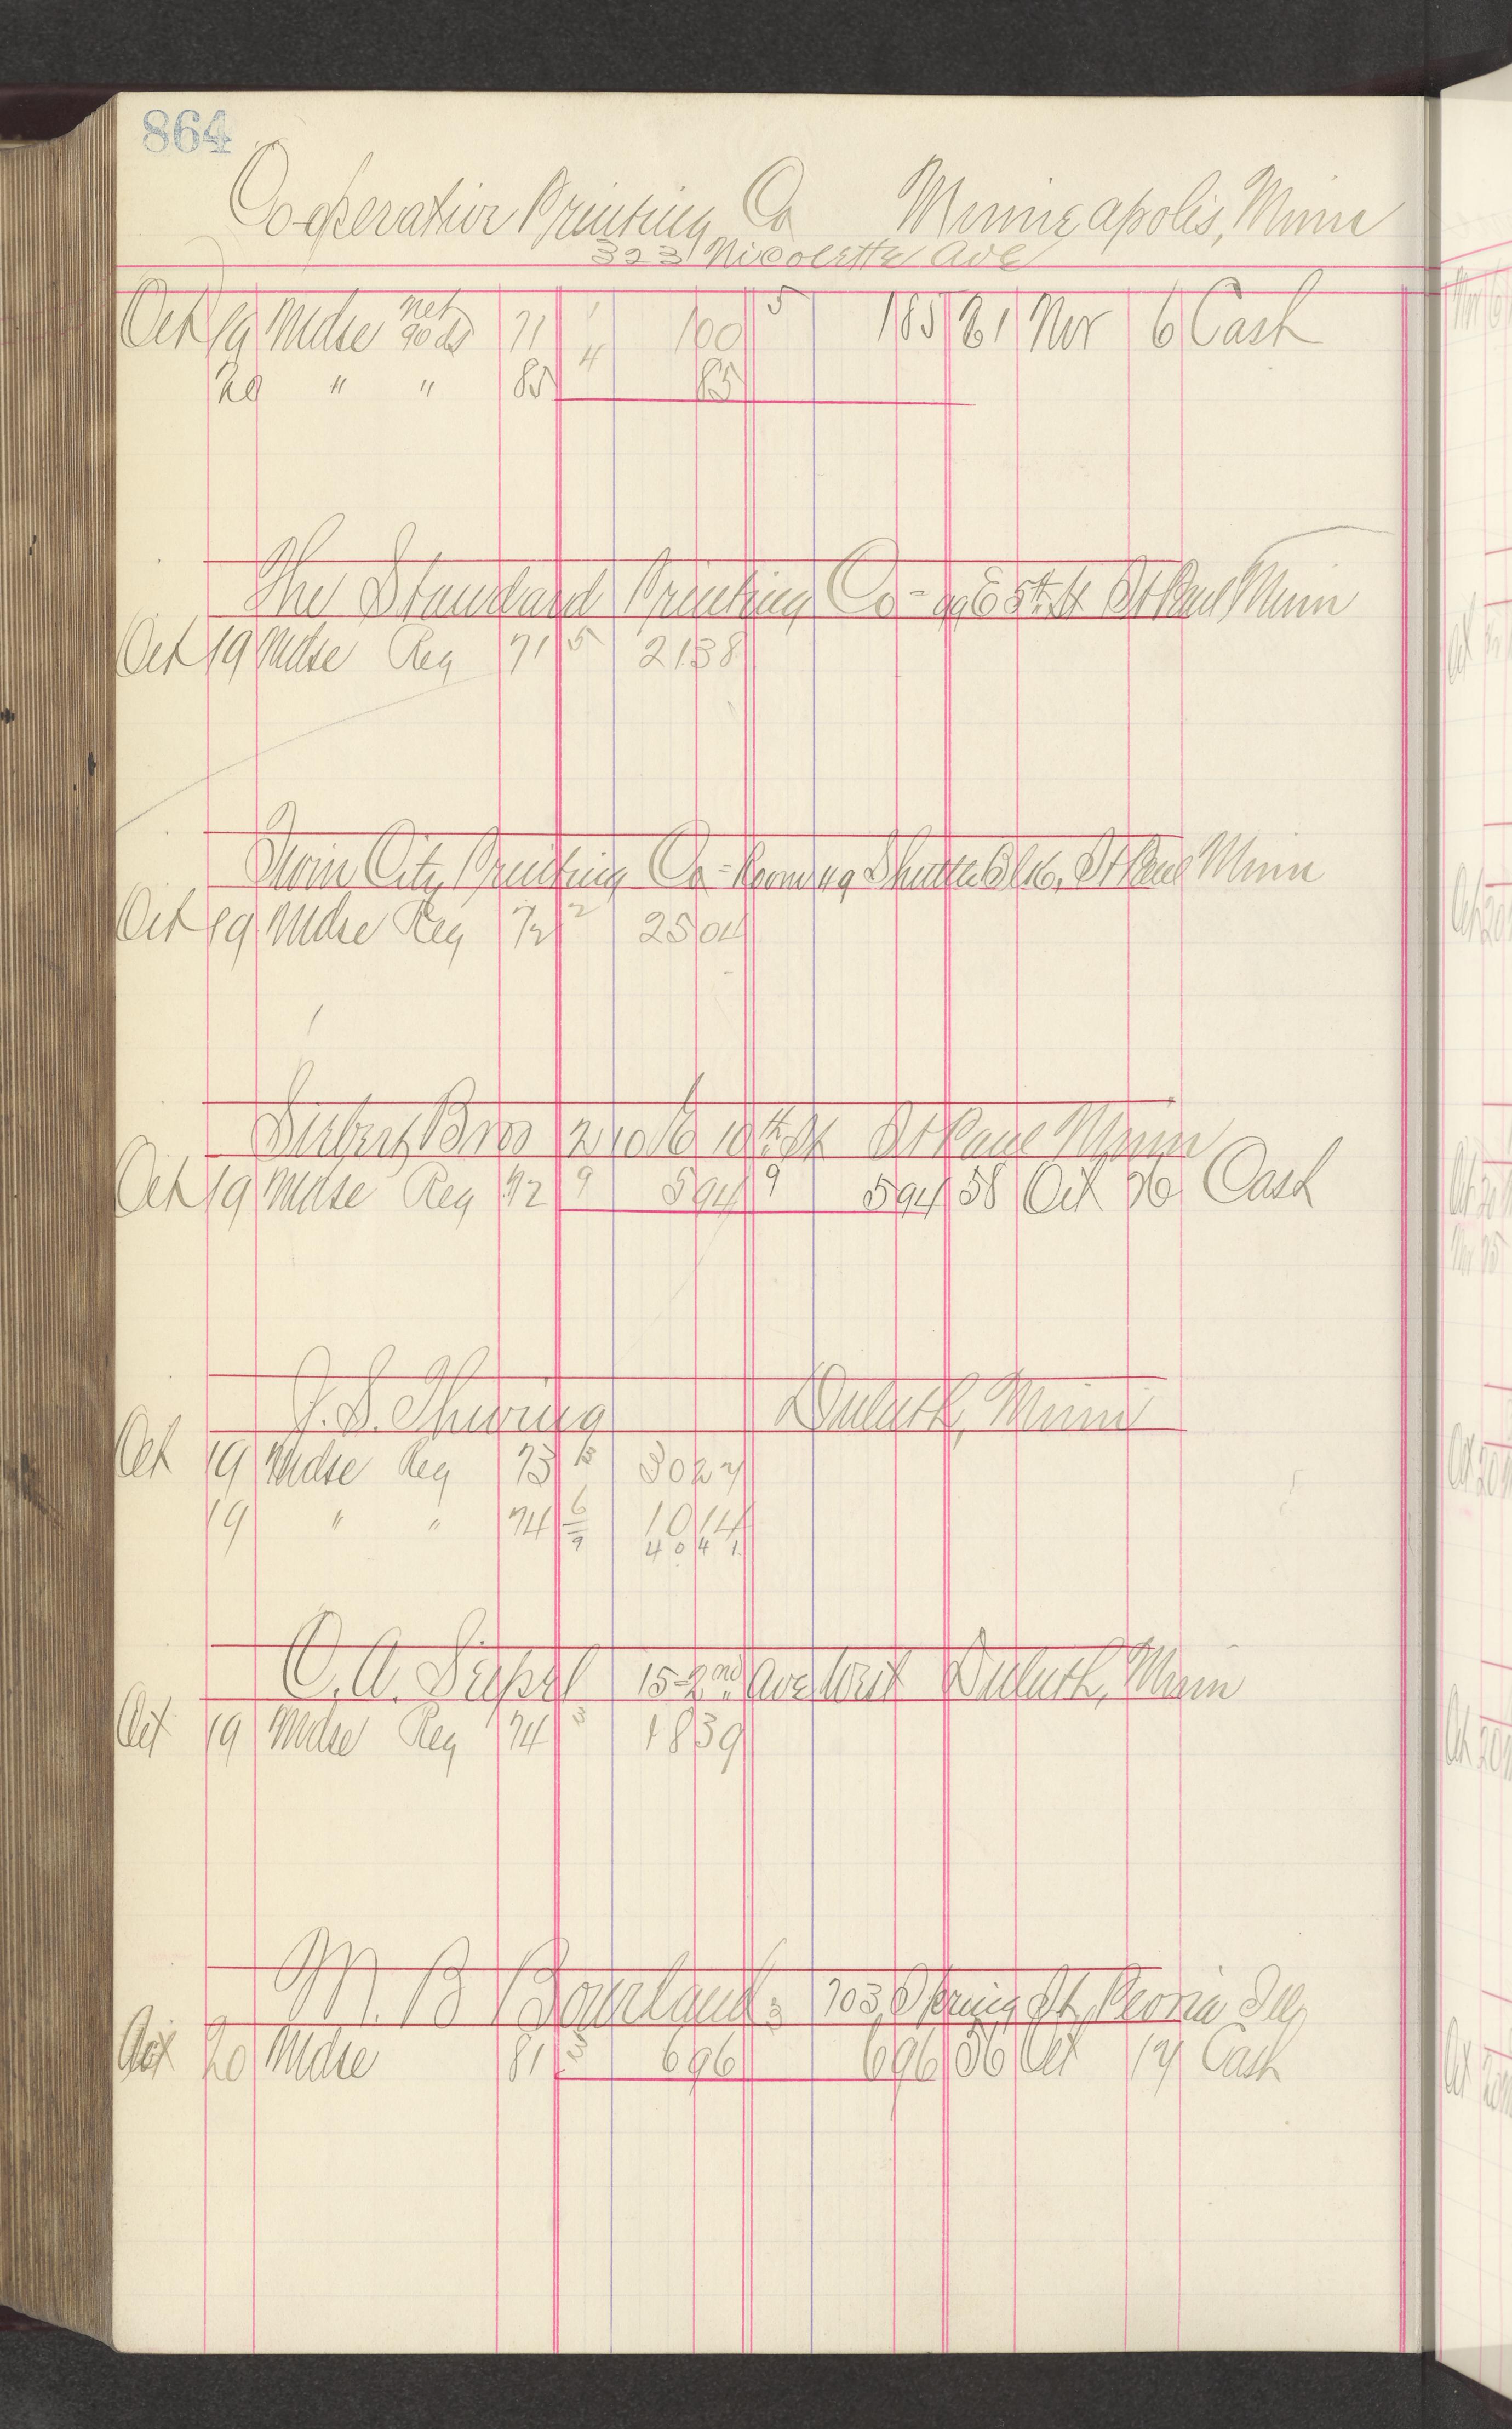 864
Co-operative Printing Co Minneapolis, Minn
323 Nicolette Ave
Oct 19 Mdse net 90 ds 71 1 100 5 185 61 Nov 6 Cash
20 " " 85 4 85
The Standard Printing Co - E 5th St St Paul Minn
Oct 19 Mdse Reg 71 5 2138
Twin City Printing Co - Room 19 Blk, St Paul Minn
Oct 19 Mdse Reg 72 2 2504
Siebert Bros 210 E 10th St St Paul Minn
Oct 19 Mdse Reg 72 9 594 9 594 58 Oct 26 Cash
J. S. Thwing Duluth, Minn
Oct 19 Mdse Reg 73 3 3027
19 " " 74 6 1014
9 4041
C. A. Siepel 15-2nd Ave West Duluth, Minn
Oct 19 Mdse Reg 74 3 1839
M. B Bourland 703 Spring St, Peoria Ill
Oct 20 Mdse 81 3 696 696 56 Oct 17 Cash